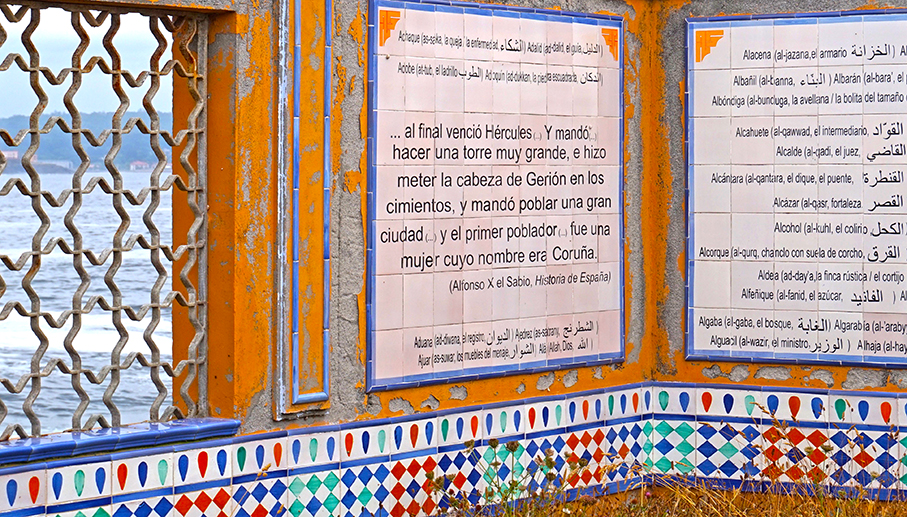 Achaque (as-saka, la queja / la enfermedad, الشكاء) Adalid (ad-dalid, el guía, الدليل)
Adobe (at-tub, el ladrillo الطوب) Adoquín (ad-dukkan, la piedra escuadrada, الدكان)
... al final venció Hércules (...) Y mandó (...)
hacer una torre muy grande, e hizo
meter la cabeza de Gerión en los
cimientos, y mandó poblar una gran
ciudad (...) y el primer poblador (...) fue una
mujer cuyo nombre era Coruña.
(Alfonso X el Sabio, Historia de España)
Aduana (ad-diwana, el registro, الديوان) Ajedrez (as-satrany, الشطرنج)
Ajuar (as-suwar, los muebles del menaje, الشوار) Alá (Allah, Dios, الله)
Alacena (al-jazana, el armario الخزانة)
Albañil (al-banna, البناء) Albarán (al-bara', el
Albóndiga (al-bunduqa, la avellana / la bolita del tamaño
Alcahuete (al-qawwad, el intermediario, القوّاد
Alcalde (al-qadi, el juez, القاضي
Alcántara (al-qantara, el dique, el puente, القنطرة
Alcázar (al-qasr, fortaleza القصر
Alcohol (al-kuhl, el colirio الكحل
Alcorque (al-qurq, chanclo con suela de corcho, القرق
Aldea (ad-day'a, la finca rústica / el cortijo
Alfeñique (al-fanid, el azúcar, الفانيد)
Algaba (al-gaba, el bosque, الغابة) Algarabía (al-'araby
Alguacil (al-wazir, el ministro, الوزير) Alhaja (al-hay